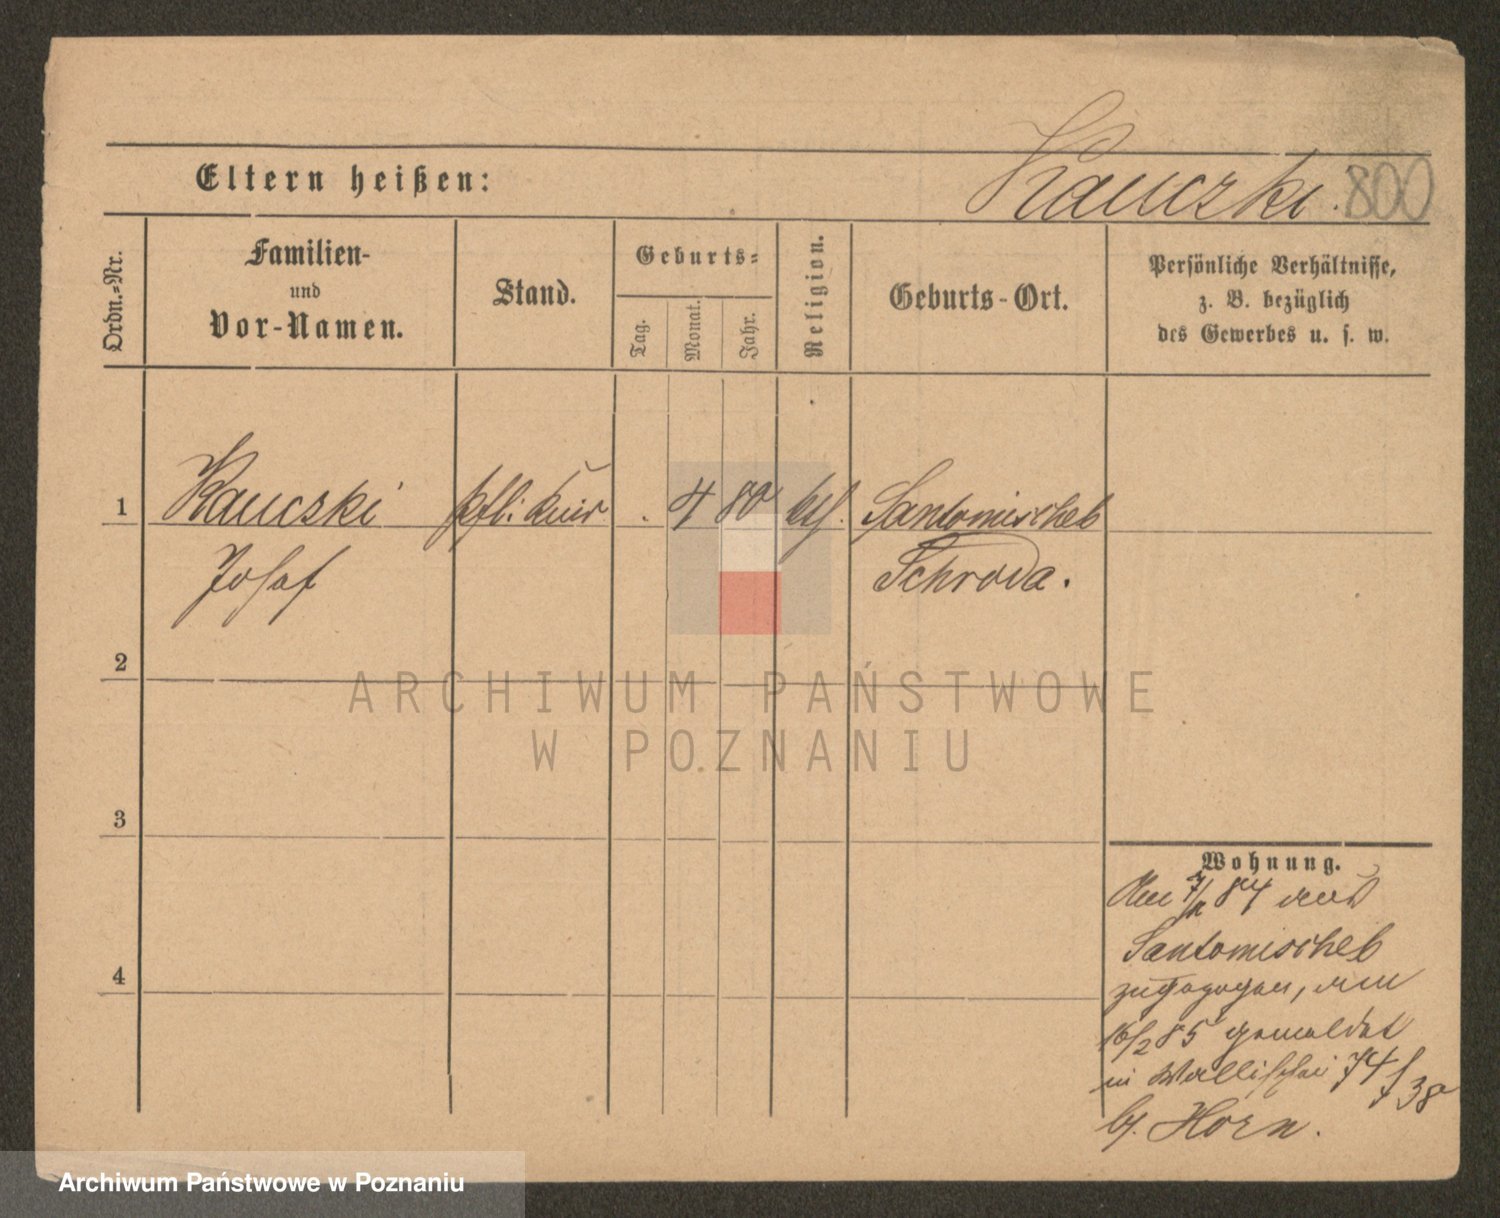 Eltern heißen:
Kauczki. 800
Ordn.-Nr.
Familien-
und
Vor-Namen.
Stand.
Geburts-
Tag.
Monat.
Jahr.
Religion.
Geburts-Ort.
Persönliche Verhältnisse,
z. B. bezüglich
des Gewerbes u. s. w.
1 Kauczki 4 80 kth. Santomischel
Josef Schroda.
2
ARCHIWUM PAŃSTWOWE
W POZNANIU
3
4
Wohnung.
Am 84 aus
Santomischel
zugezogen, am
16/2 85 gemeldet
in Wallischei 74/38
b/. Horn.
Archiwum Państwowe w Poznaniu